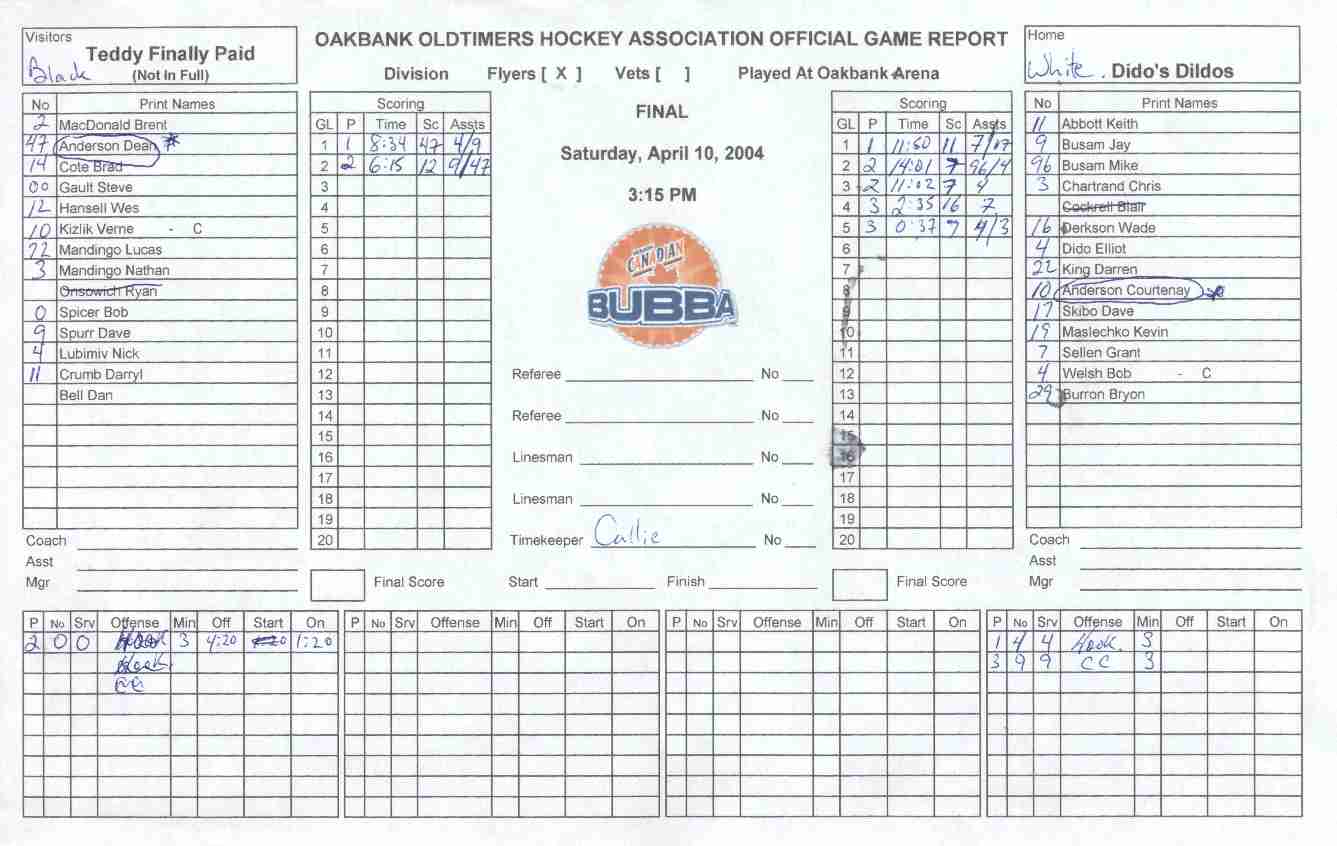 Visitors
Black
Teddy Finally Paid
(Not in Full)
OAKBANK OLDTIMERS HOCKEY ASSOCIATION OFFICIAL GAME REPORT
Division Flyers [ X ] Vets [ ] Played At Oakbank Arena
Home
White . Dido's Dildos
No Print Names
2 MacDonald Brent
47 Anderson Dean *
14 Cote Brad
00 Gault Steve
12 Hansell Wes
10 Kizlik Verne - C
22 Mandingo Lucas
3 Mandingo Nathan
Onsowich Ryan
0 Spicer Bob
9 Spurr Dave
4 Lubimiv Nick
11 Crumb Darryl
Bell Dan
Scoring
GL P Time Sc Assts
1 1 8:34 47 4/9
2 2 6:15 12 9/47
3
4
5
6
7
8
9
10
11
12
13
14
15
16
17
18
19
20
FINAL
Saturday, April 10, 2004
3:15 PM
CANADIAN
BUBBA
Referee No
Referee No
Linesman No
Linesman No
Timekeeper Callie No
Scoring
GL P Time Sc Assts
1 1 11:50 11 7/17
2 2 14:01 7 96/4
3 2 11:02 7 4
4 3 2:35 16 7
5 3 0:37 9 4/3
6
7
8
9
10
11
12
13
14
15
16
17
18
19
20
No Print Names
11 Abbott Keith
9 Busam Jay
96 Busam Mike
3 Chartrand Chris
Cockrell Blair
16 Derkson Wade
4 Dido Elliot
22 King Darren
10 Anderson Courtenay *
17 Skibo Dave
19 Maslechko Kevin
7 Sellen Grant
4 Welsh Bob - C
29 Burron Bryon
Coach
Asst
Mgr
Final Score Start Finish Final Score
Coach
Asst
Mgr
P No Srv Offense Min Off Start On
2 0 0 Hook 3 4:20 1:20
Hook
CC
P No Srv Offense Min Off Start On
P No Srv Offense Min Off Start On
P No Srv Offense Min Off Start On
1 4 4 Hook 3
3 9 9 CC 3